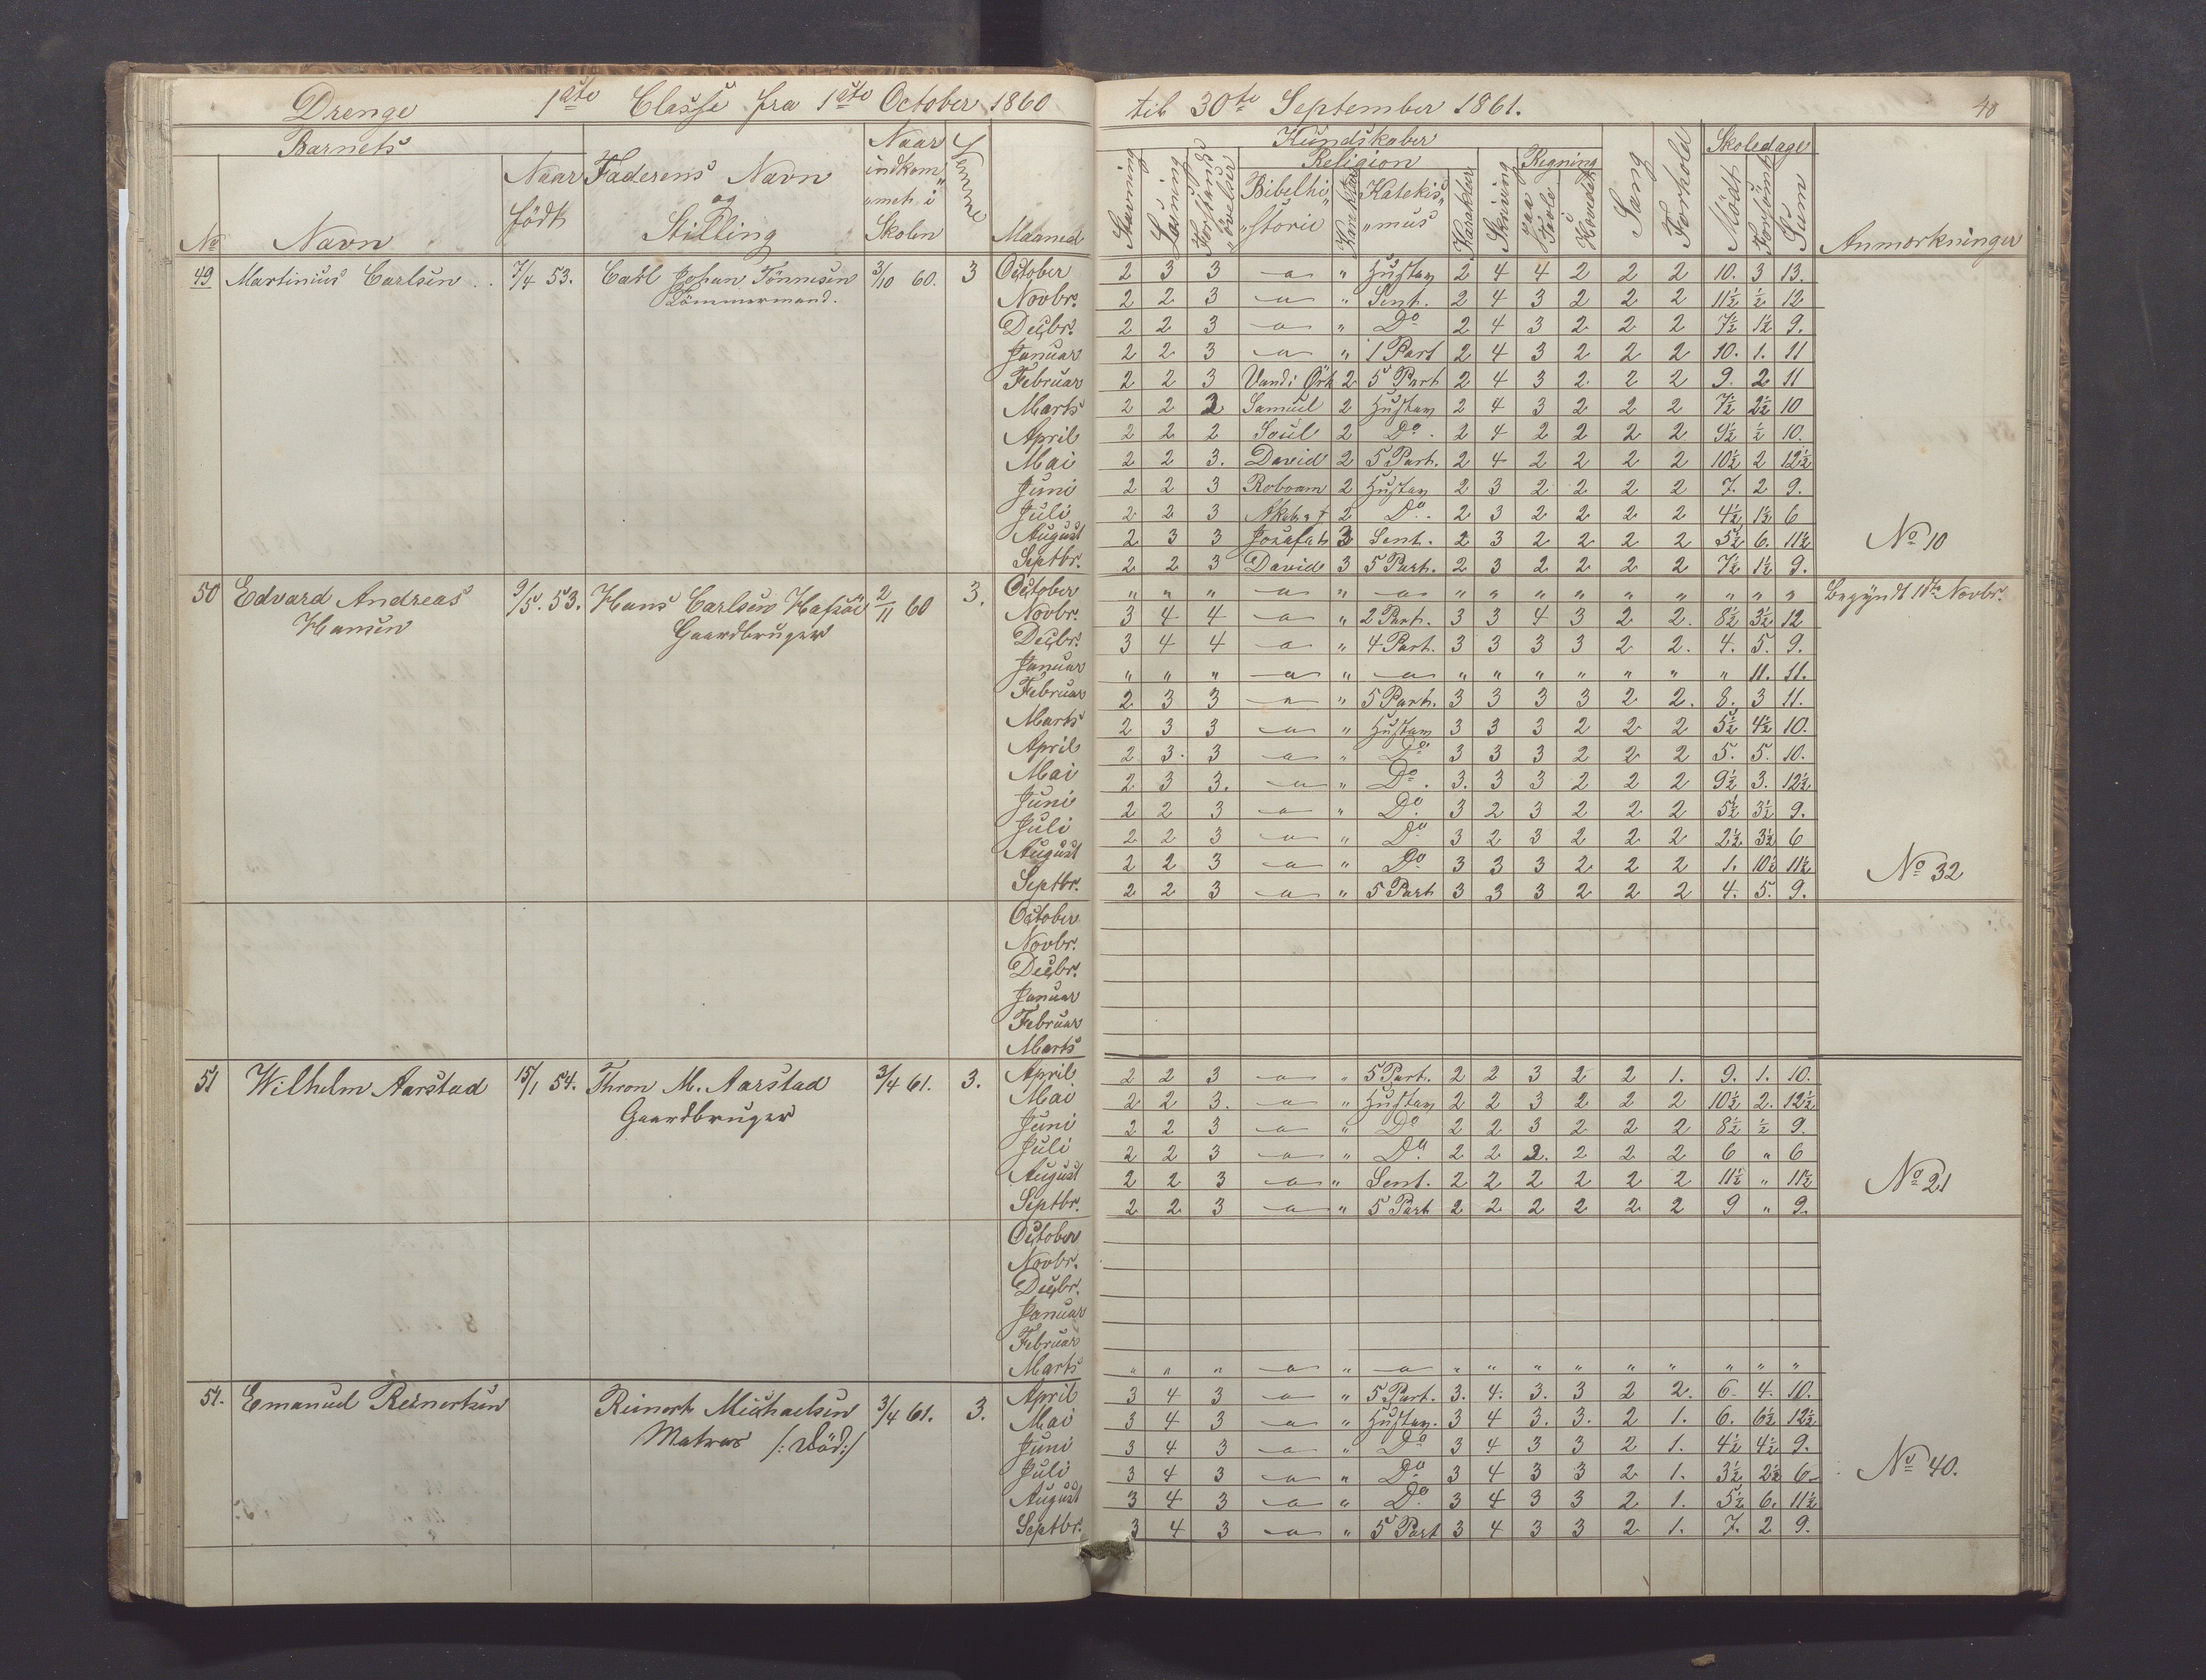 Drenge 1ste Classe fra 1ste October 1860 til 30te September 1861. 40
Barnets Naar Kundskaber Skoledage
No Navn Naar født Faderens Navn og Stilling indkom„met i Skolen Evne Maaned Stavning Læsning Forstands„øvelser Religion Bibelhi„storie Karakter Katekis„mus Karakter Skrivning Regning paa Tavle Hovedet Sang Forhold Mødt Forsømt Sum Anmærkninger
49 Martinius Carlsen 7/4 53. Carl Johan Tönnesen 3/10 60. 3 October 2 3 3 " Hustav 2 4 4 2 2 2 10. 3 13.
Tömmermand. Novbr. 2 2 3 " Sent. 2 4 3 2 2 2 11½ ½ 12
Decbr. 2 2 3 " Do 2 4 3 2 2 2 7½ 1½ 9.
Januar 2 2 3 " 1 Part 2 4 3 2 2 2 10. 1. 11
Februar 2 2 3 Vand i Ørk 2 5 Part 2 4 3 2 2 2 9. 2 11
Marts 2 2 2 Samuel 2 Hustav 2 4 3 2 2 2 7½ 2½ 10
April 2 2 2 Saul 2 Do. 2 4 2 2 2 2 9½ ½ 10.
Mai 2 2 3. David 2 5 Part. 2 4 2 2 2 2 10½ 2 12½
Juni 2 2 3 Roboam 2 Hustav 2 3 2 2 2 2 7. 2 9.
Juli 2 2 3 2 Do. 2 3 2 2 2 2 4½ 1½ 6
August 2 3 3 Josafat 3 Sent. 2 3 2 2 2 2 5½ 6. 11½ No 10
Septbr. 2 2 3 David 3 5 Part. 2 3 2 2 2 2 7½ 1½ 9.
50 Edvard Andreas 9/5. 53. Hans Carlsen Hafsöe 2/11 60 3. October " " " " " " " " " " " " " Begyndt 11te Novbr.
Hansen Gaardbruger Novbr. 3 4 4 " 2 Part. 3 3 4 3 2 2. 8½ 3½ 12
Decbr. 3 4 4 " 4 Part. 3 3 3 3 2 2. 4. 5. 9.
Januar " " " " " " " " " " " 11. 11.
Februar 2 3 3 " 5 Part. 3 3 3 3 2 2. 8. 3 11.
Marts 2 3 3 " Hustav 3 3 3 2 2 2 5½ 4½ 10.
April 2 3. 3 " Do 3 3 3 2 2 2 5. 5. 10.
Mai 2 3 3. " Do. 3. 3 3 2 2 2 9½ 3. 12½
Juni 2 2 3 " Do. 3 2 3 2 2 2 5½ 3½ 9.
Juli 2 2 3 " Do 3 2 3 2 2 2 2½ 3½ 6
August 2 2 3 " Do 3 3 3 2 2 2 1. 10½ 11½ No 32
Septbr. 2 2 3 " 5 Part 3 3 3 2 2 2 4. 5. 9.
October
Novbr.
Decbr.
Januar
Februar
Marts
51 Wilhelm Aarstad 15/1 54. Thron M. Aarstad 3/4 61. 3. April 2 2 3 " 5 Part. 2 2 3 2 2 1. 9. 1. 10.
Gaardbruger Mai 2 2 3. " Hustav 2 2 3 2 2 2 10½ 2. 12½
Juni 2 2 3 " Do 2 2 3 2 2 2 8½ ½ 9.
Juli 2 2 3 " Do. 2 2 2. 2 2 2 6 " 6
August 2 2 3 " Sent. 2 2 2 2 2 2 11½ " 11½ No 21
Septbr. 2 2 3 " 5 Part 2 2 2 2 2 2 9 " 9.
October
Novbr.
Decbr.
Januar
Februar
Marts " " " " " " " " " " " " "
51. Emanuel Reinertsen Reinert Michaelsen 3/4 61. 3. April 3 4 3 " 5 Part. 3. 4. 3. 3 2 2. 6. 4. 10.
Matros /: Död:/ Mai 3 4 3 " Hustav. 3 4 3. 3. 2 1. 6. 6½ 12½
Juni 3 4 3 " Do 3 4 3 3 2 1. 4½ 4½ 9.
Juli 3 4 3 " Do 3 4 3 3 2 1. 3½ 2½ 6 No 40.
August 3 4 3 " Do. 3 4 3 3 2 1. 5½ 6. 11½
Septbr. 3 4 3 " 5 Part 3 4 3 3 2 1. 7. 2 9.